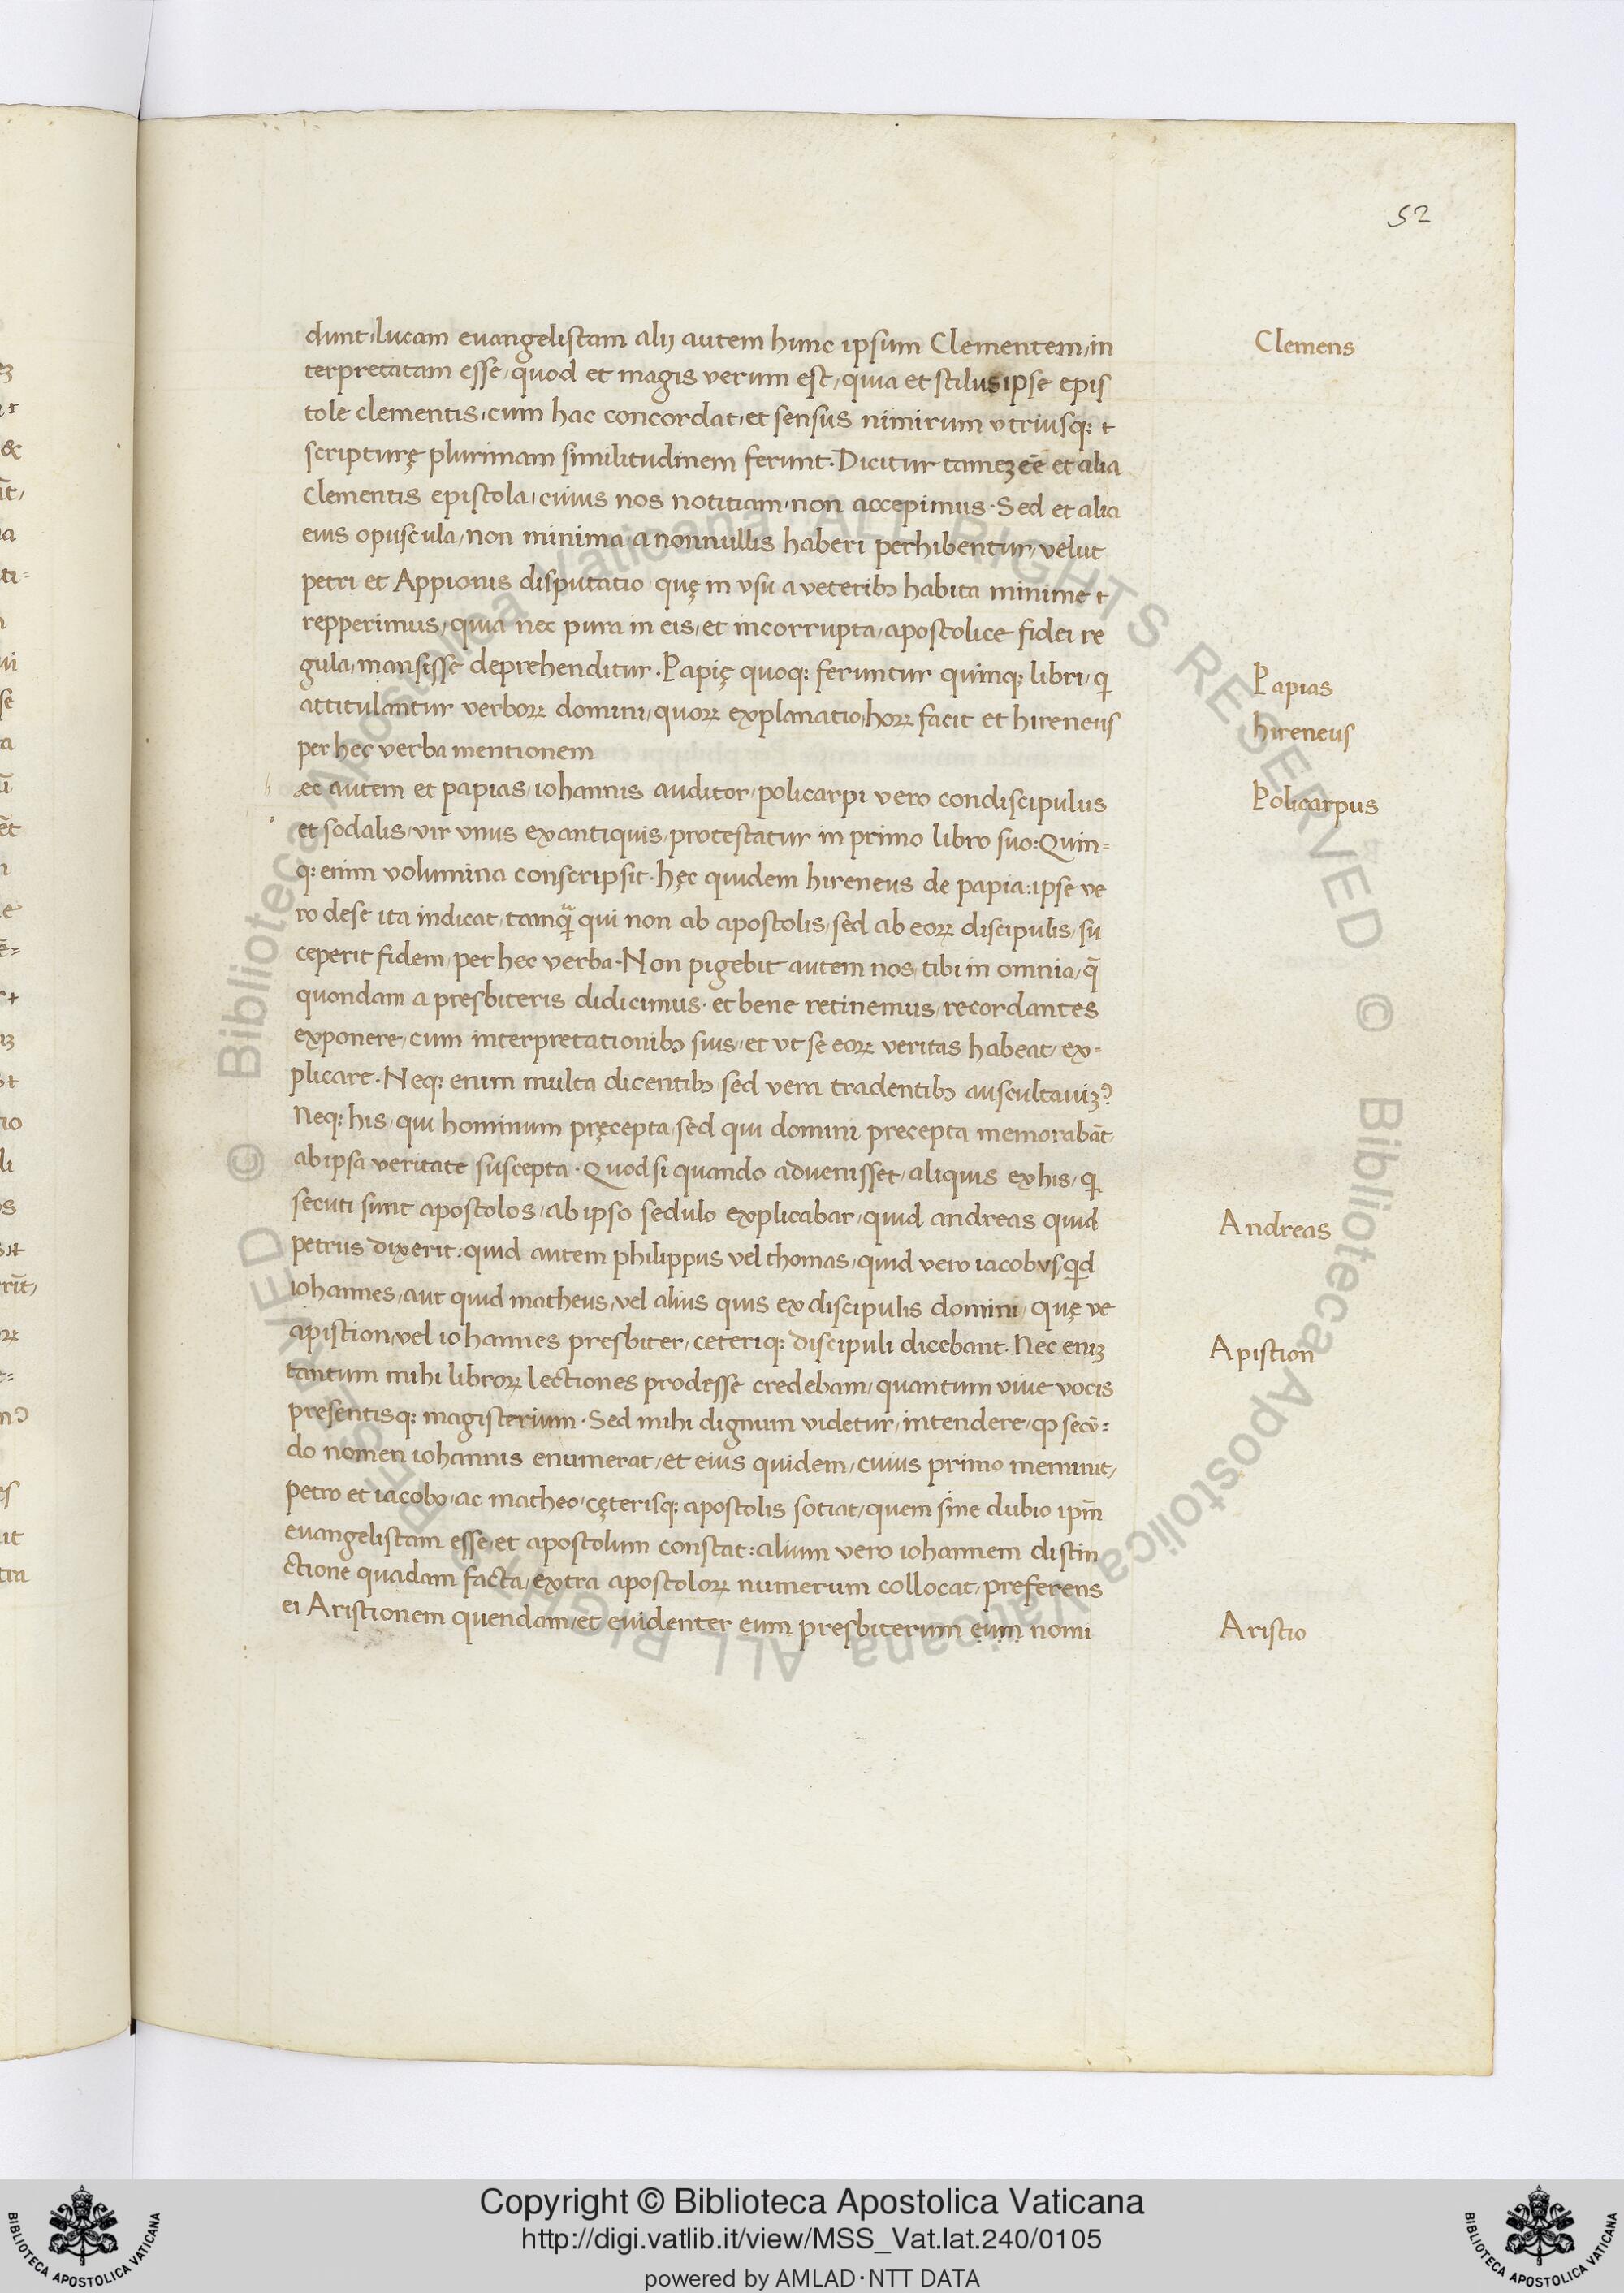 52
dunt, lucam euangelistam alij autem hunc ipsum Clementem, in
terpretatam esse, quod et magis verum est, quia et stilus ipse epis
tole clementis, cum hac concordat, et sensus nimirum vtriusq; t
scripturę plurimam similitudinem ferunt. Dicitur tameʒ eē et alia
Clementis epistola, cuius nos notitiam, non accepimus. Sed et alia
eius opuscula, non minima a nonnullis haberi perhibentur, velut
petri et Appionis disputatio quę in vsu a veteribꝰ habita minime t
repperimus, quia nec pura in eis, et incorrupta, apostolice fidei re
gula, mansisse deprehenditur. Papię quoq; feruntur quinq; libri, qi
attitulantur verboꝝ domini, quoꝝ explanatio, hoꝝ facit et hireneus
per hec verba mentionem
h
ec autem et papias, iohannis auditor, policarpi vero condiscipulus
et sodalis, vir vnus ex antiquis, protestatur in primo libro suo: Quin=
q; enim volumina conscripsit. hęc quidem hireneus de papia: ipse ve
ro de se ita indicat, tamqᷓ qui non ab apostolis, sed ab eoꝝ discipulis, su
ceperit fidem, per hec verba. Non pigebit autem nos, tibi in omnia, q̄
quondam a presbiteris didicimus. et bene retinemus, recordantes
exponere, cum interpretationibꝰ suis, et vt se eoꝝ veritas habeat, ex=
plicare. Neq; enim multa dicentibꝰ sed vera tradentibꝰ auscultauiʒꝰ
Neq; his, qui hominum pręcepta, sed qui domini precepta memorabāt
ab ipsa veritate suscepta. Quod si quando aduenisset, aliquis ex his, qi
secuti sunt apostolos, ab ipso sedulo explicabar, quid andreas quid
petrus dixerit: quid autem philippus vel thomas, quid vero iacobus, qid
iohannes, aut quid matheus, vel alius quis ex discipulis domini, quę ve
apistion, vel iohannes presbiter, ceteriq; discipuli dicebant. Nec eniʒ
tantum mihi libroꝝ lectiones prodesse credebam, quantum viue vocis
presentisq; magisterium. Sed mihi dignum videtur, intendere, ꝙ secū=
do nomen iohannis enumerat, et eius quidem, cuius primo meminit,
petro et iacobo, ac matheo, cęterisq; apostolis sotiat, quem sine dubio ipm̄
euangelistam esse, et apostolum constat: alium vero iohannem distin
ctione quadam facta, extra apostoloꝝ numerum collocat, preferens
ei Aristionem quendam, et euidenter eum presbiterum eum nomi
Clemens
Papias
hireneus
Policarpus
Andreas
Apistion
Aristio
Copyright © Biblioteca Apostolica Vaticana
http://digi.vatlib.it/view/MSS_Vat.lat.240/0105
powered by AMLAD·NTT DATA